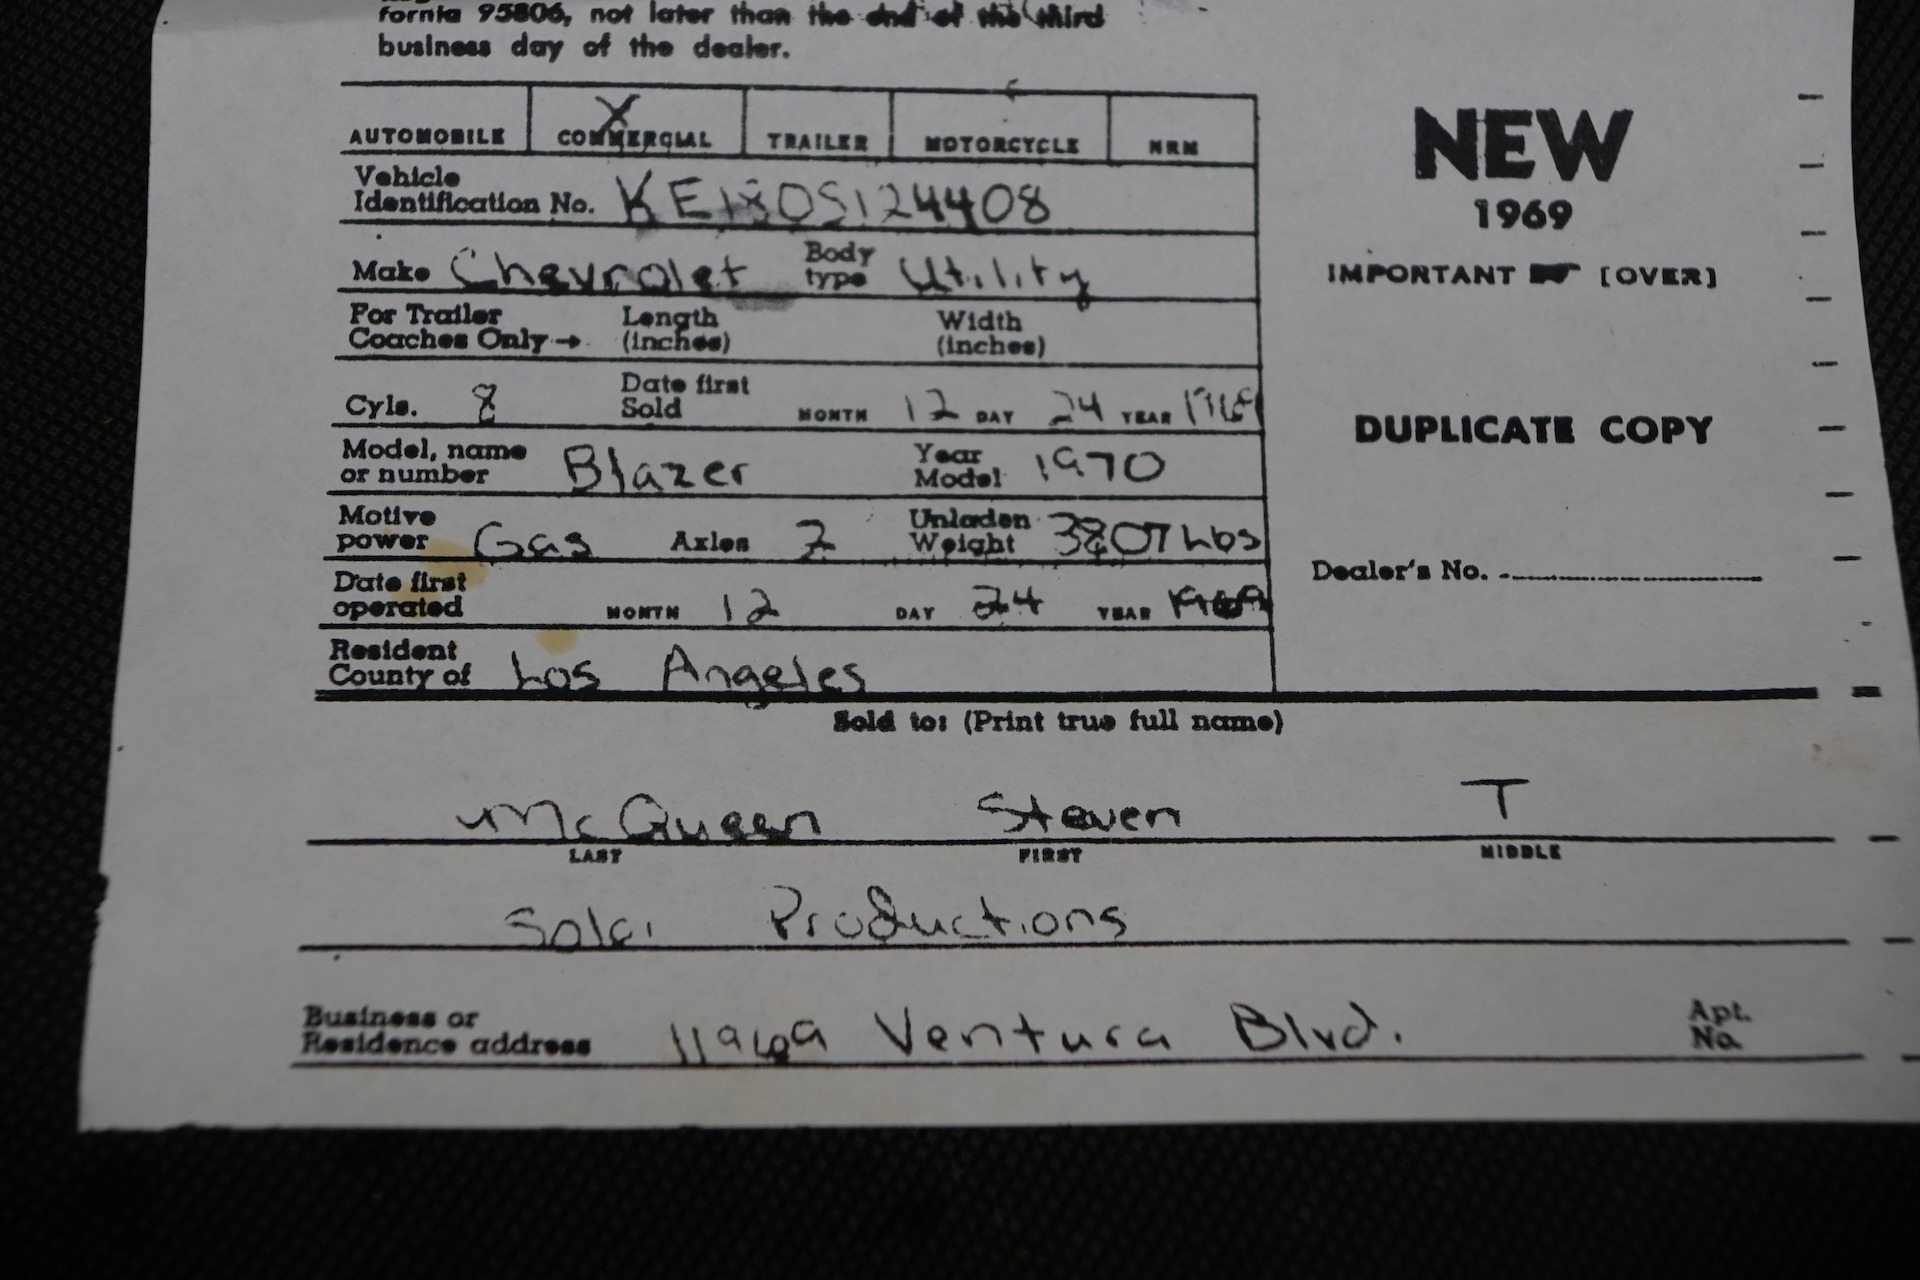 fornia 95806, not later than the end of the third
business day of the dealer.
X
AUTOMOBILE COMMERCIAL TRAILER MOTORCYCLE NRM
Vehicle
Identification No. KE180S124408
Make Chevrolet Body type Utility
For Trailer Coaches Only → Length (inches) Width (inches)
Cyls. 8 Date first Sold MONTH 12 DAY 24 YEAR 1969
Model, name or number Blazer Year Model 1970
Motive power Gas Axles 2 Unladen Weight 3807 Lbs
Date first operated MONTH 12 DAY 24 YEAR 1969
Resident County of Los Angeles
NEW
1969
IMPORTANT ☛ [OVER]
DUPLICATE COPY
Dealer's No.
Sold to: (Print true full name)
McQueen Steven T
LAST FIRST MIDDLE
Solar Productions
Business or Residence address 11969 Ventura Blvd. Apt. No.